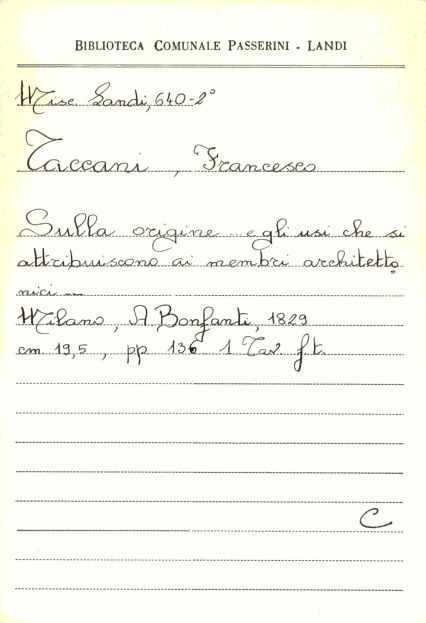 BIBLIOTECA COMUNALE PASSERINI - LANDI
Misc. Landi, 640-2°
Taccani, Francesco
Sulla origine ... e gli usi che si
attribuiscono ai membri architetto
nici ...
Milano, A. Bonfanti, 1829
cm 19,5, pp 136 1 Tav f.t.
C